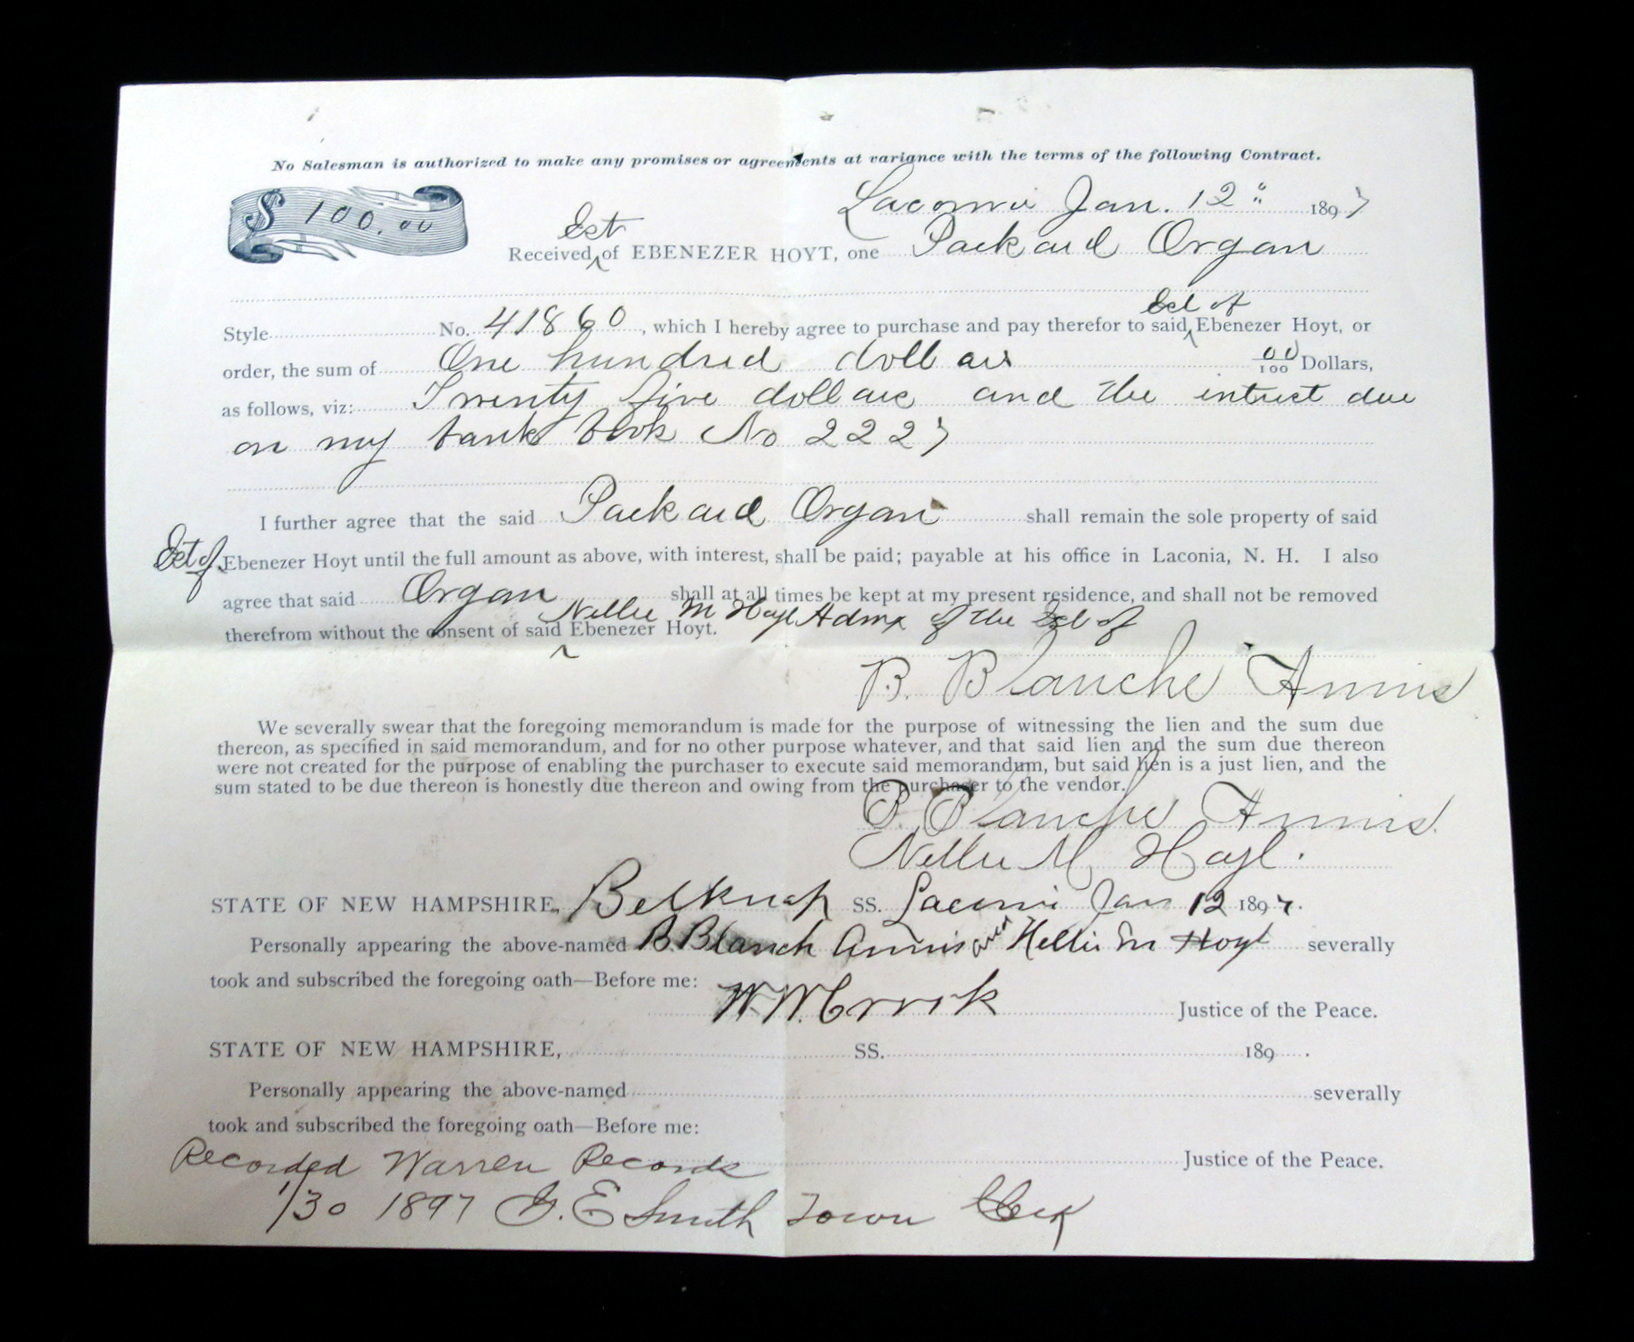 No Salesman is authorized to make any promises or agreements at variance with the terms of the following Contract.
$ 100.00
Laconia Jan. 12" 1897
Est
Received of EBENEZER HOYT, one Packard Organ
Est of
Style No. 41860, which I hereby agree to purchase and pay therefor to said Ebenezer Hoyt, or
order, the sum of One hundred dollars 00/100 Dollars,
as follows, viz: Twenty five dollars and the intrest due
on my bank book No 2227
I further agree that the said Packard Organ shall remain the sole property of said
Est of Ebenezer Hoyt until the full amount as above, with interest, shall be paid; payable at his office in Laconia, N. H. I also
agree that said Organ shall at all times be kept at my present residence, and shall not be removed
Nellie M Hoyt Admx of the Est of
therefrom without the consent of said Ebenezer Hoyt.
B. Blanche Annis
We severally swear that the foregoing memorandum is made for the purpose of witnessing the lien and the sum due
thereon, as specified in said memorandum, and for no other purpose whatever, and that said lien and the sum due thereon
were not created for the purpose of enabling the purchaser to execute said memorandum, but said lien is a just lien, and the
sum stated to be due thereon is honestly due thereon and owing from the purchaser to the vendor.
B. Blanche Annis.
Nellie M Hoyt.
STATE OF NEW HAMPSHIRE, Belknap SS. Laconia Jan 12 1897.
Personally appearing the above-named B. Blanch Annis and Nellie M Hoyt severally
took and subscribed the foregoing oath—Before me:
W. W. Justice of the Peace.
STATE OF NEW HAMPSHIRE, SS. 189 .
Personally appearing the above-named severally
took and subscribed the foregoing oath—Before me:
Recorded Warren Records Justice of the Peace.
1/30 1897 G. E Smith Town Clerk